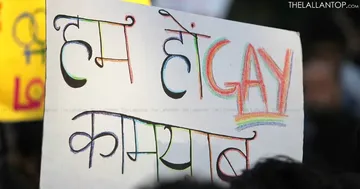 THELALLANTOP.COM
हम हों GAY
कामयाब
LO